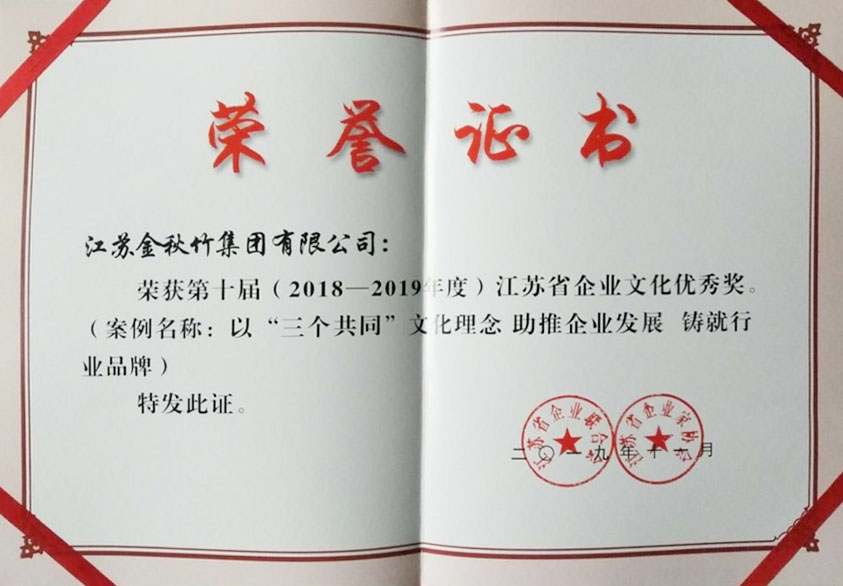 荣誉证书
江苏金秋竹集团有限公司：
荣获第十届（2018—2019年度）江苏省企业文化优秀奖。
（案例名称：以“三个共同”文化理念 助推企业发展 铸就行
业品牌）
特发此证。
江苏省企业联合会
江苏省企业家协会
二〇一九年十一月